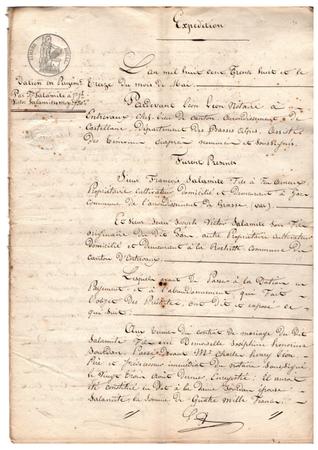 Expédition
Dation en Payemt
Par Fs Salamite à Jh
Victor Salamite son fils
L'an mil huit cent Trente huit et le
Treize du mois de Mai
Pardevant Léon Notaire à
Entrevaux chef lieu de canton arrondissement de
Castellane Département des Basses alpes, assisté
des témoins ciaprès nommés et soussignés
Furent Présents
Sieur François Salamite fils à feu
Propriétaire cultivateur Domicilié et Demeurant à
Commune de l'arrondissement de Grasse (var)
Et Sieur Jean Joseph Victor Salamite son fils
originaire du dit autre Propriétaire cultivateur
Domicilié et Demeurant à la Rochette Commune du
canton d'Entrevaux
Lesquels avant de Passer à la Dation en
Payement et à l'abandonnement qui fait
l'objet des Présentes, ont dit et exposé ce
qui suit
Aux termes du contrat de mariage du dit
Salamite fils avec Demoiselle Joséphine honorine
Passé devant Me Charles henry Léon
Père et Prédécesseur immédiat du notaire soussigné
le vingt Trois Août dernier Enregistré Il aurait
été constitué en Dot à la dame épouse
Salamite la somme de Quatre mille Francs